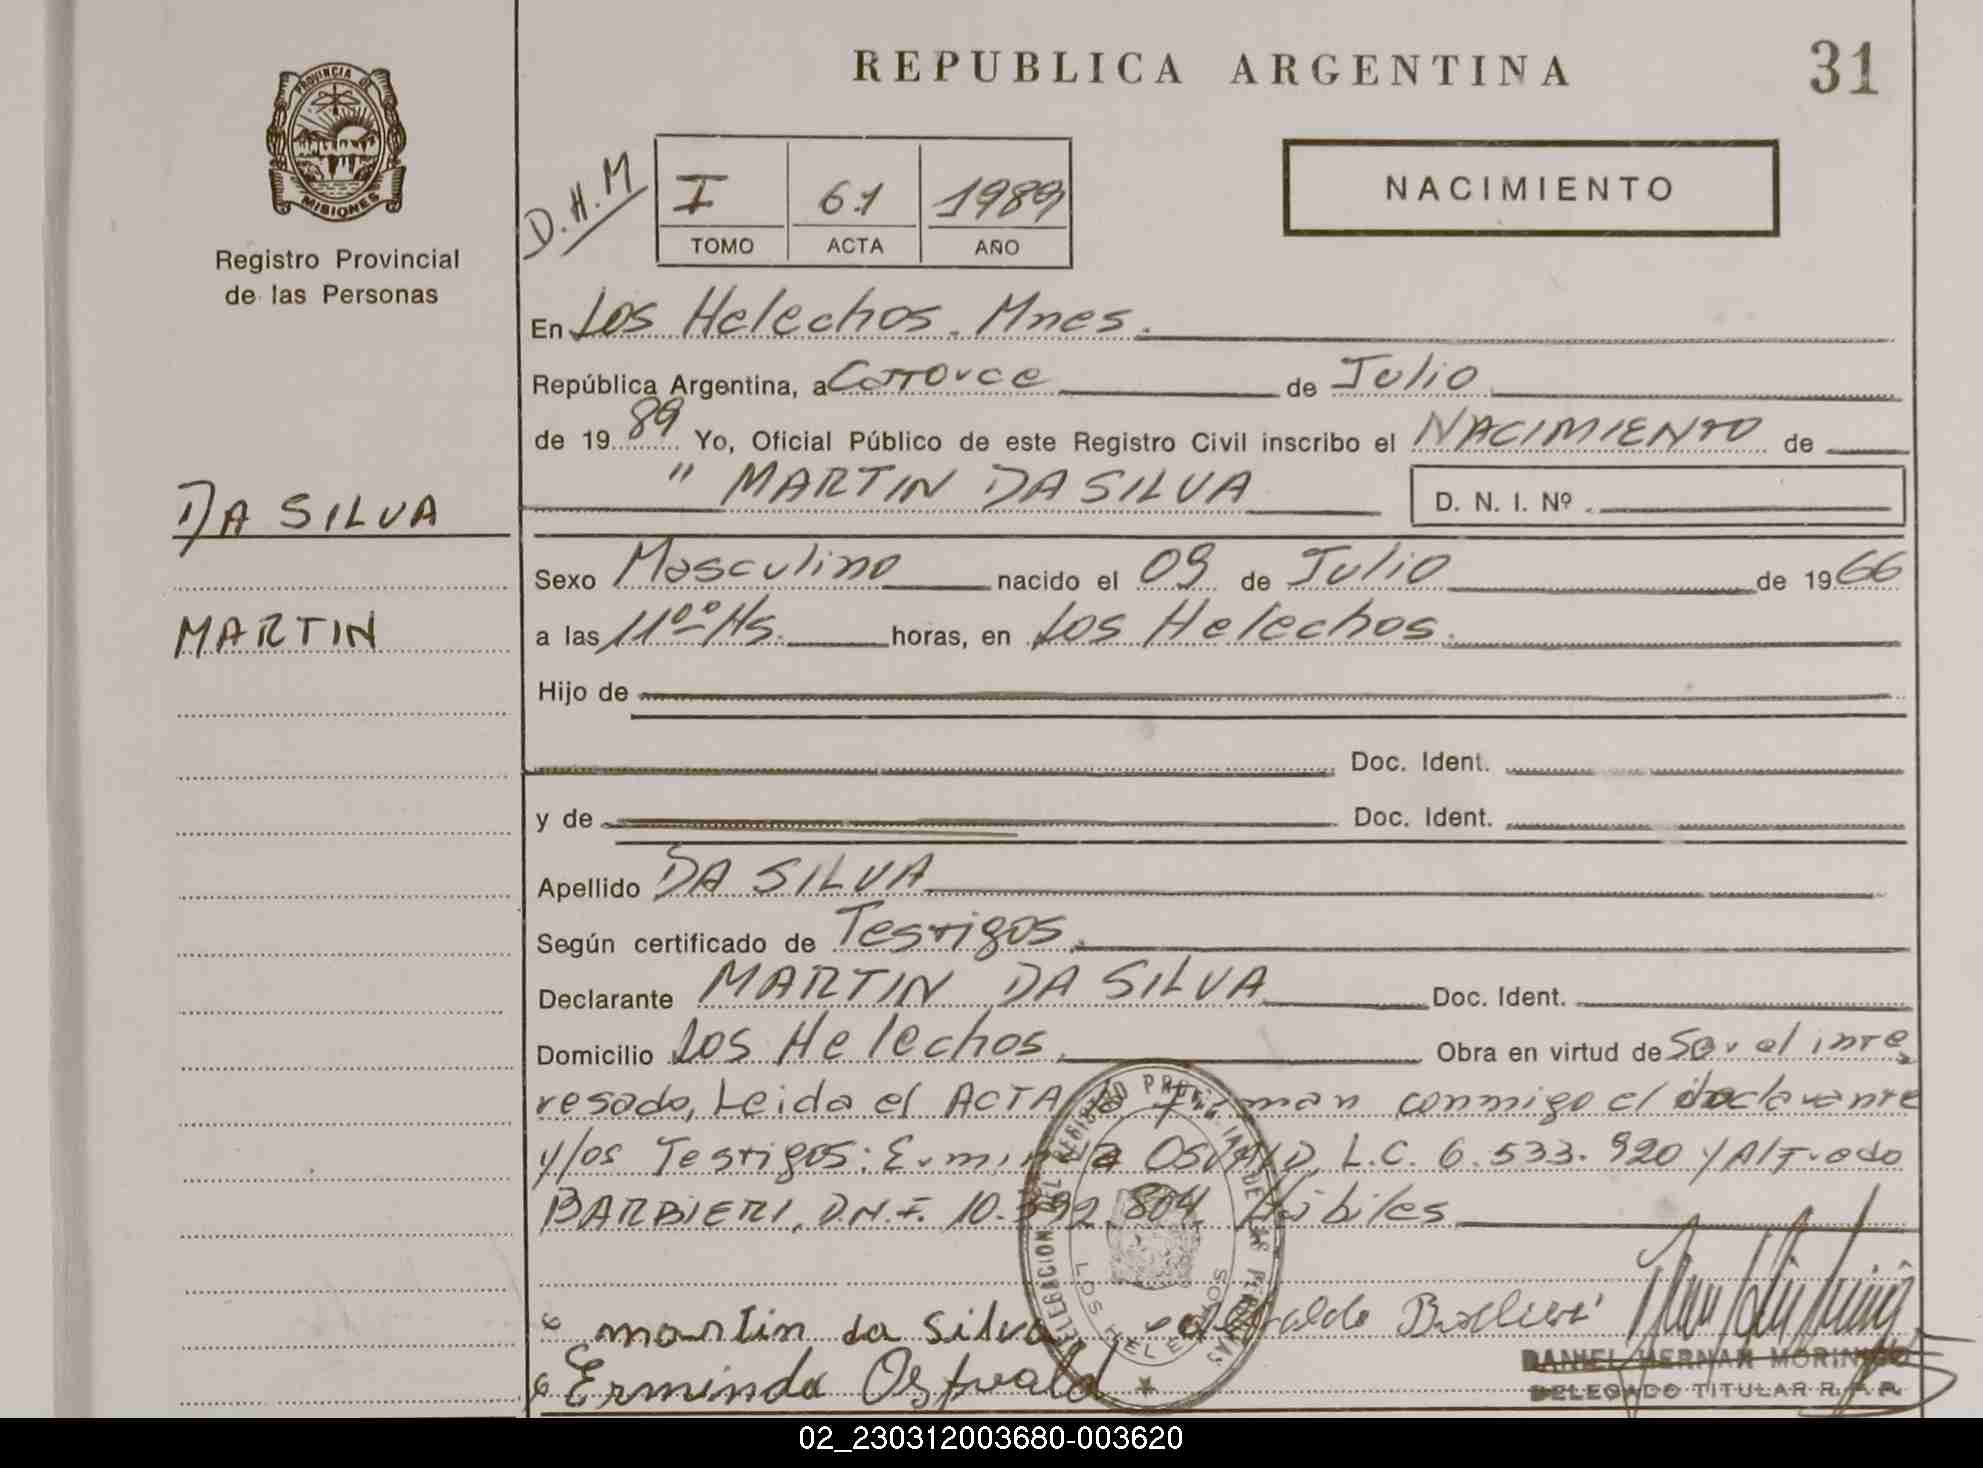 REPUBLICA ARGENTINA
31
PROVINCIA DE
MISIONES
Registro Provincial
de las Personas
D.H.M
I 61 1989
TOMO ACTA AÑO
NACIMIENTO
En Los Helechos. Mnes.
República Argentina, a Catorce de Julio
de 19 89 Yo, Oficial Público de este Registro Civil inscribo el NACIMIENTO de
" MARTIN DA SILVA
D. N. I. Nº
DA SILVA
MARTIN
Sexo Masculino nacido el 09 de Julio de 19 66
a las 11ºº Hs. horas, en Los Helechos.
Hijo de
Doc. Ident.
y de Doc. Ident.
Apellido DA SILVA
Según certificado de Testigos.
Declarante MARTIN DA SILVA Doc. Ident.
Domicilio Los Helechos. Obra en virtud de Ser el inte
resado, Leida el ACTA la Firman conmigo el declarante
y/os Testigos: Erminda OSVALD, L.C. 6.533.920 y Alfredo
BARBIERI, D.N.I. 10.392.804 Hábiles
DELEGACION DEL REGISTRO PROVINCIAL DE LAS PERSONAS
LOS HELECHOS
martin da silva
Erminda Osfvald
DANIEL HERNAN MORINIGO
DELEGADO TITULAR R. P. P.
02_230312003680-003620